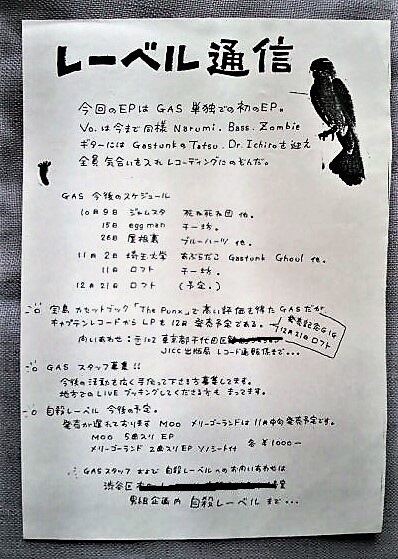 レーベル通信
今回のEPは GAS 単独での初のEP。
Vo.は今まで同様 Narumi. Bass. Zombie
ギターには GastunkのTatsu. Dr. Ichiroを迎え
全員 気合いを入れ レコーディングにのぞんだ。
GAS 今後のスケジュール
10月9日 ジャムスタ 死ね死ね団 他。
15日 egg man チー坊。
26日 屋根裏 ブルーハーツ 他。
11月2日 埼玉大学 あぶらだこ Gastunk Ghoul 他。
11日 ロフト チー坊。
12月21日 ロフト (予定。)
宝島 カセットブック「The Punx」で高い評価を得た GASだが
キャプテンレコードから LPも 12月 発売予定である。
発売記念GIG
12月21日ロフト
問いあわせ: 〒102 東京都千代田区
JICC出版局 レコード通販係まで...
GAS スタッフ募集!!
今後の活動を広く手伝って下さる方募集してます。
地方でのLIVE ブッキングしてくださる方もまってます。
自殺レーベル 今後の予定。
発売が遅れております MOO メリーゴーランドは 11月中旬発売予定です。
MOO 5曲入り EP
メリーゴーランド 2曲入り EP ソノシート付
各 ¥1000-
GASスタッフ および 自殺レーベルへのお問いあわせは
渋谷区
男組企画内 自殺レーベル まで...